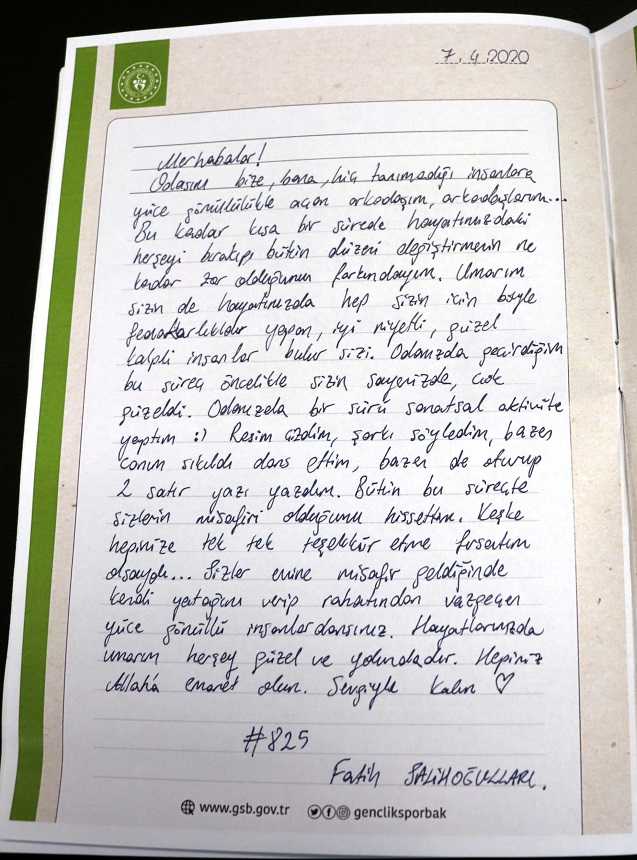 7.4.2020
Merhabalar!
Odasını bize, bana, hiç tanımadığı insanlara
yüce gönüllülükle açan arkadaşım, arkadaşlarım...
Bu kadar kısa bir sürede hayatınızdaki
herşeyi bırakıp bütün düzeni değiştirmenin ne
kadar zor olduğunun farkındayım. Umarım
sizin de hayatınızda hep sizin için böyle
fedakarlıklar yapan, iyi niyetli, güzel
kalpli insanlar bulur sizi. Odanızda geçirdiğim
bu süreç öncelikle sizin sayenizde, çok
güzeldi. Odanızda bir sürü sanatsal aktivite
yaptım :) Resim çizdim, şarkı söyledim, bazen
canım sıkıldı dans ettim, bazen de oturup
2 satır yazı yazdım. Bütün bu süreçte
sizlerin misafiri olduğumu hissettim. Keşke
hepinize tek tek teşekkür etme fırsatım
olsaydı... Sizler evine misafir geldiğinde
kendi yatağını verip rahatından vazgeçen
yüce gönüllü insanlardansınız. Hayatlarınızda
umarım herşey güzel ve yolundadır. Hepiniz
Allah'a emanet olun. Sevgiyle kalın ♡
#825
Fatih SALİHOĞULLARI.
www.gsb.gov.tr gencliksporbak